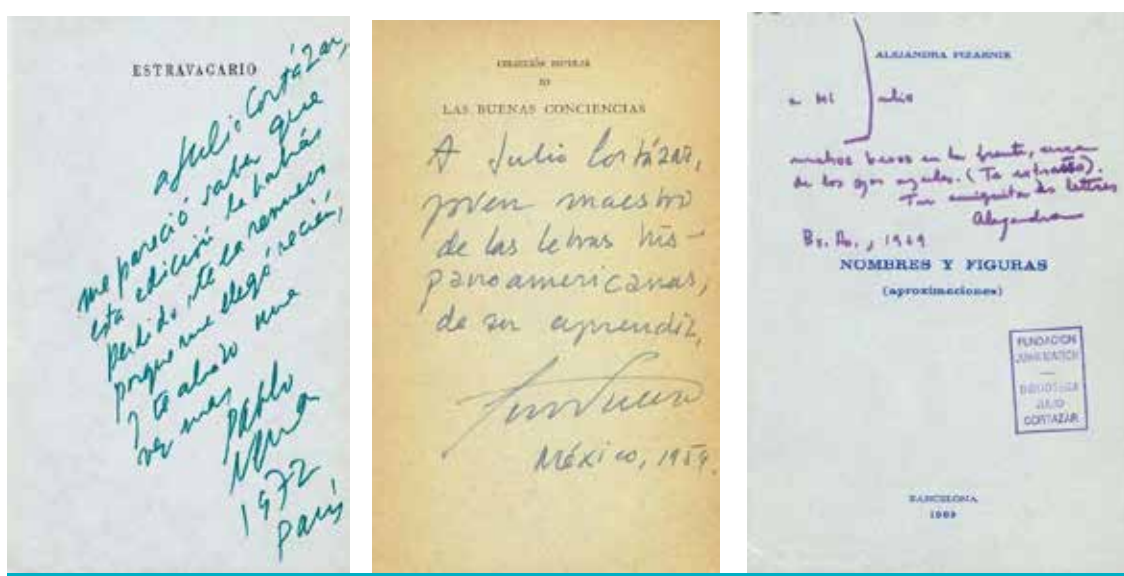 ESTRAVAGARIO
a Julio Cortázar,
me pareció saber que
esta edición la habrás
perdido, te la renuevo
porque me llegó recién,
y te abrazo una
vez mas
Pablo
Neruda
1972
París
COLECCIÓN POPULAR
LAS BUENAS CONCIENCIAS
A Julio Cortázar,
joven maestro
de las letras his-
panoamericanas,
de su aprendiz,
México, 1959.
ALEJANDRA PIZARNIK
a mi Julio
muchos besos en la frente, cerca
de los ojos azules. (Te extraño).
Tu amiguita des lettres
Alejandra
Bs. As., 1969
NOMBRES Y FIGURAS
(aproximaciones)
FUNDACION
JUAN MARCH
BIBLIOTECA
JULIO
CORTAZAR
BARCELONA
1969